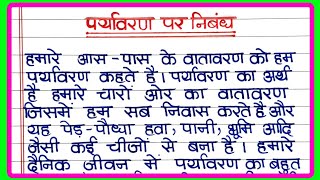 पर्यावरण पर निबंध
हमारे आस-पास के वातावरण को हम
पर्यावरण कहते है। पर्यावरण का अर्थ
है हमारे चारों ओर का वातावरण
जिसमें हम सब निवास करते है और
यह पेड़-पौध्या हवा, पानी, भूमि आदि
जैसी कई चीजों से बना है। हमारे
दैनिक जीवन में पर्यावरण का बहुत